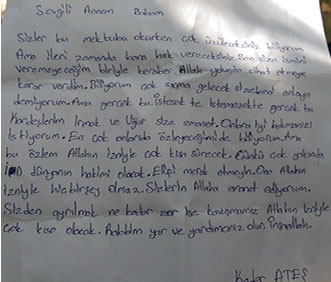 Sevgili Annem Babam
Sizler bu mektubu okurken çok üzüleceksiniz biliyorum
Ama ileri zamanda bana hak vereceksiniz. Ben size ismini
veremeyeceğim biriyle beraber Allah yolunda cihat etmeye
karar verdim. Biliyorum çok saçma gelecek size beni anlayın
demiyorum. Ama gerçek bu. İstesekte İstemesekte gerçek bu
Kardeşlerim Irmak ve Uğur size emanet. Onlara iyi bakmanızı
istiyorum. En çok onlarıda özleyeceğimide biliyorum. Ama
bu özlem Allahın izniyle çok kısa sürecek. Çünkü çok yakında
dünyanın hakimi olacak. merak etmeyin. Ona Allahın
izniyle hiçbirşey olmaz. Sizleride Allaha emanet ediyorum.
Sizden ayrılmak ne kadar zor ise kavuşmamız Allahın izniyle
çok kısa olacak. Rabbim yar ve yardımcınız olsun İnşallah.
ATEŞ